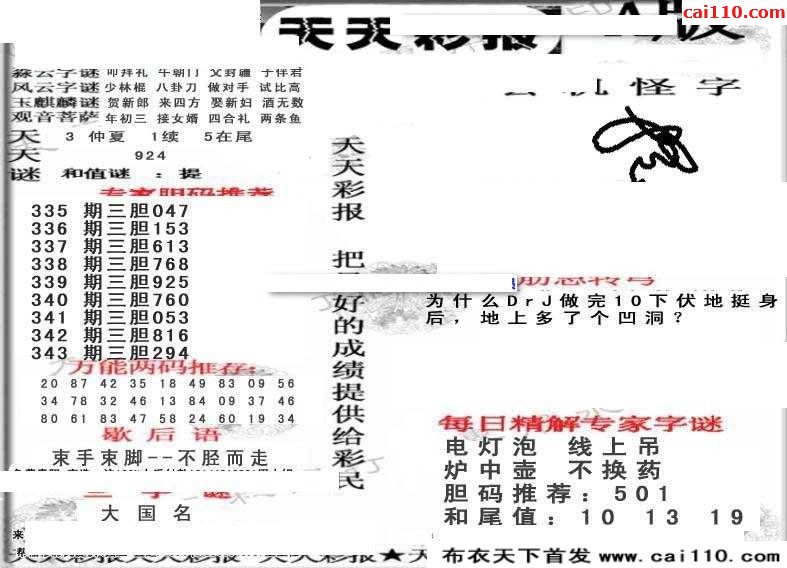 cai110.com
天天彩报 A版
森云字谜 叩拜礼 午朝门 父封疆 子伴君
风云字谜 少林棍 八卦刀 做对手 试比高
玉麒麟谜 贺新郎 来四方 娶新妇 酒无数
观音菩萨 年初三 接女婿 四合礼 两条鱼
天 3 仲夏 1续 5在尾
天 924
谜 和值谜 ：提
专家胆码推荐
335 期三胆047
336 期三胆153
337 期三胆613
338 期三胆768
339 期三胆925
340 期三胆760
341 期三胆053
342 期三胆816
343 期三胆294
万能两码推荐:
20 87 42 35 18 49 83 09 56
34 78 32 46 13 84 09 37 46
80 61 83 47 58 24 60 19 34
歇后语
束手束脚--不胫而走
三字谜
大国名
天天彩报 把最好的成绩提供给彩民
玄机怪字
脑急转弯
为什么DrJ做完10下伏地挺身
后，地上多了个凹洞？
每日精解专家字谜
电灯泡 线上吊
炉中壶 不换药
胆码推荐：501
和尾值：10 13 19
天天彩报天天彩报天天彩报 天天彩报★天 布衣天下首发 www.cai110.com